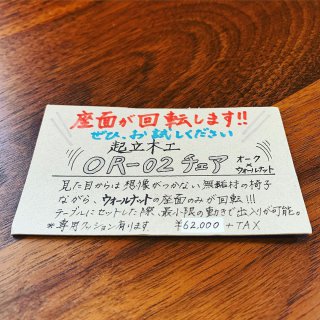 座面が回転します!!
ぜひ、お試しください
起立木工
OR-02 チェア オーク×ウォールナット
見た目からは想像がつかない無垢材の椅子
ながら、ウォールナットの座面のみが回転!!!
テーブルにセットした際、最小限の動きで出入りが可能。
※専用クッション有ります ¥62,000 + TAX